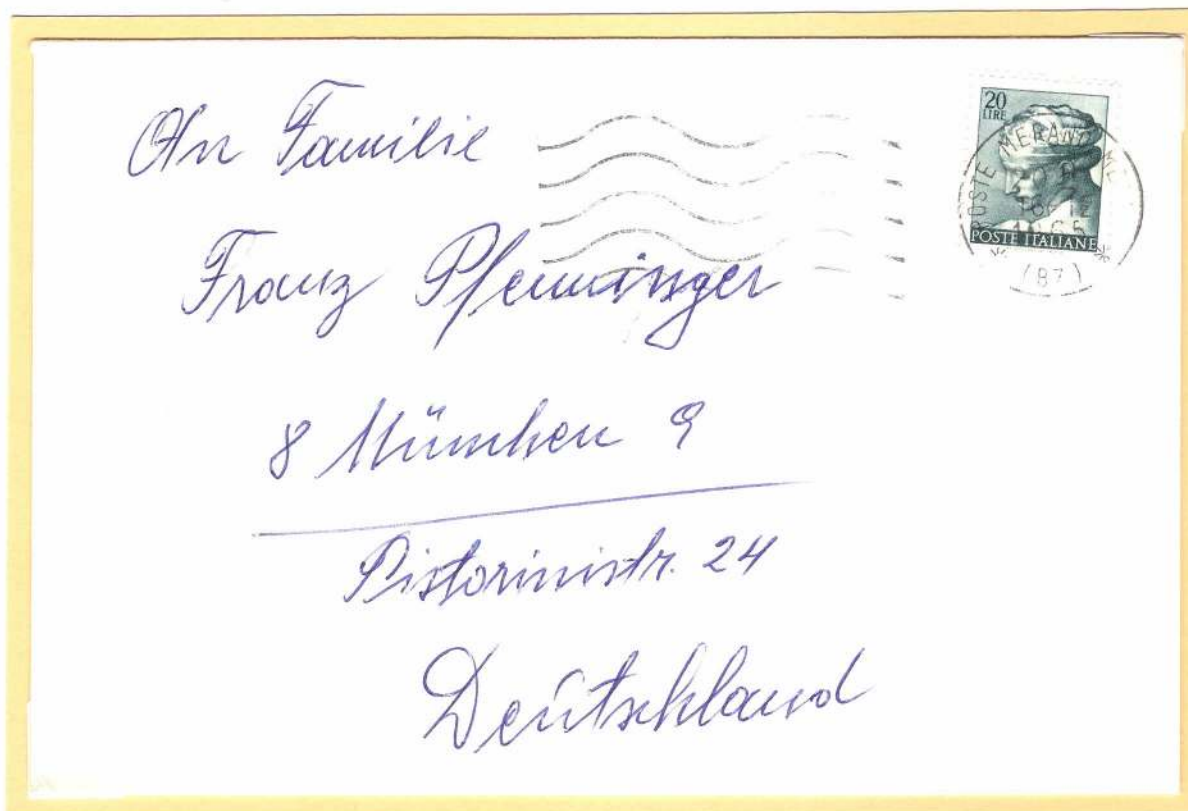 An Familie
Franz Pfenninger
8 München 9
Pistorinistr. 24
Deutschland
20
LIRE
POSTE ITALIANE
POSTE MERANO
(BZ)